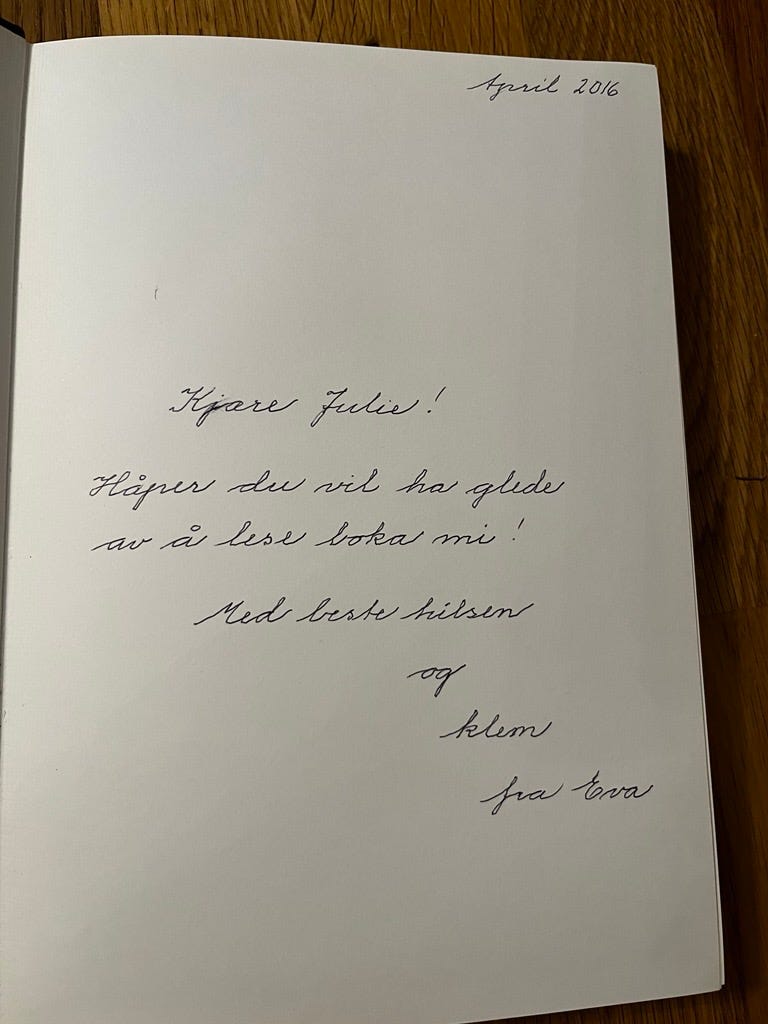 April 2016
Kjære Julie!
Håper du vil ha glede
av å lese boka mi!
Med beste hilsen
og
klem
fra Eva